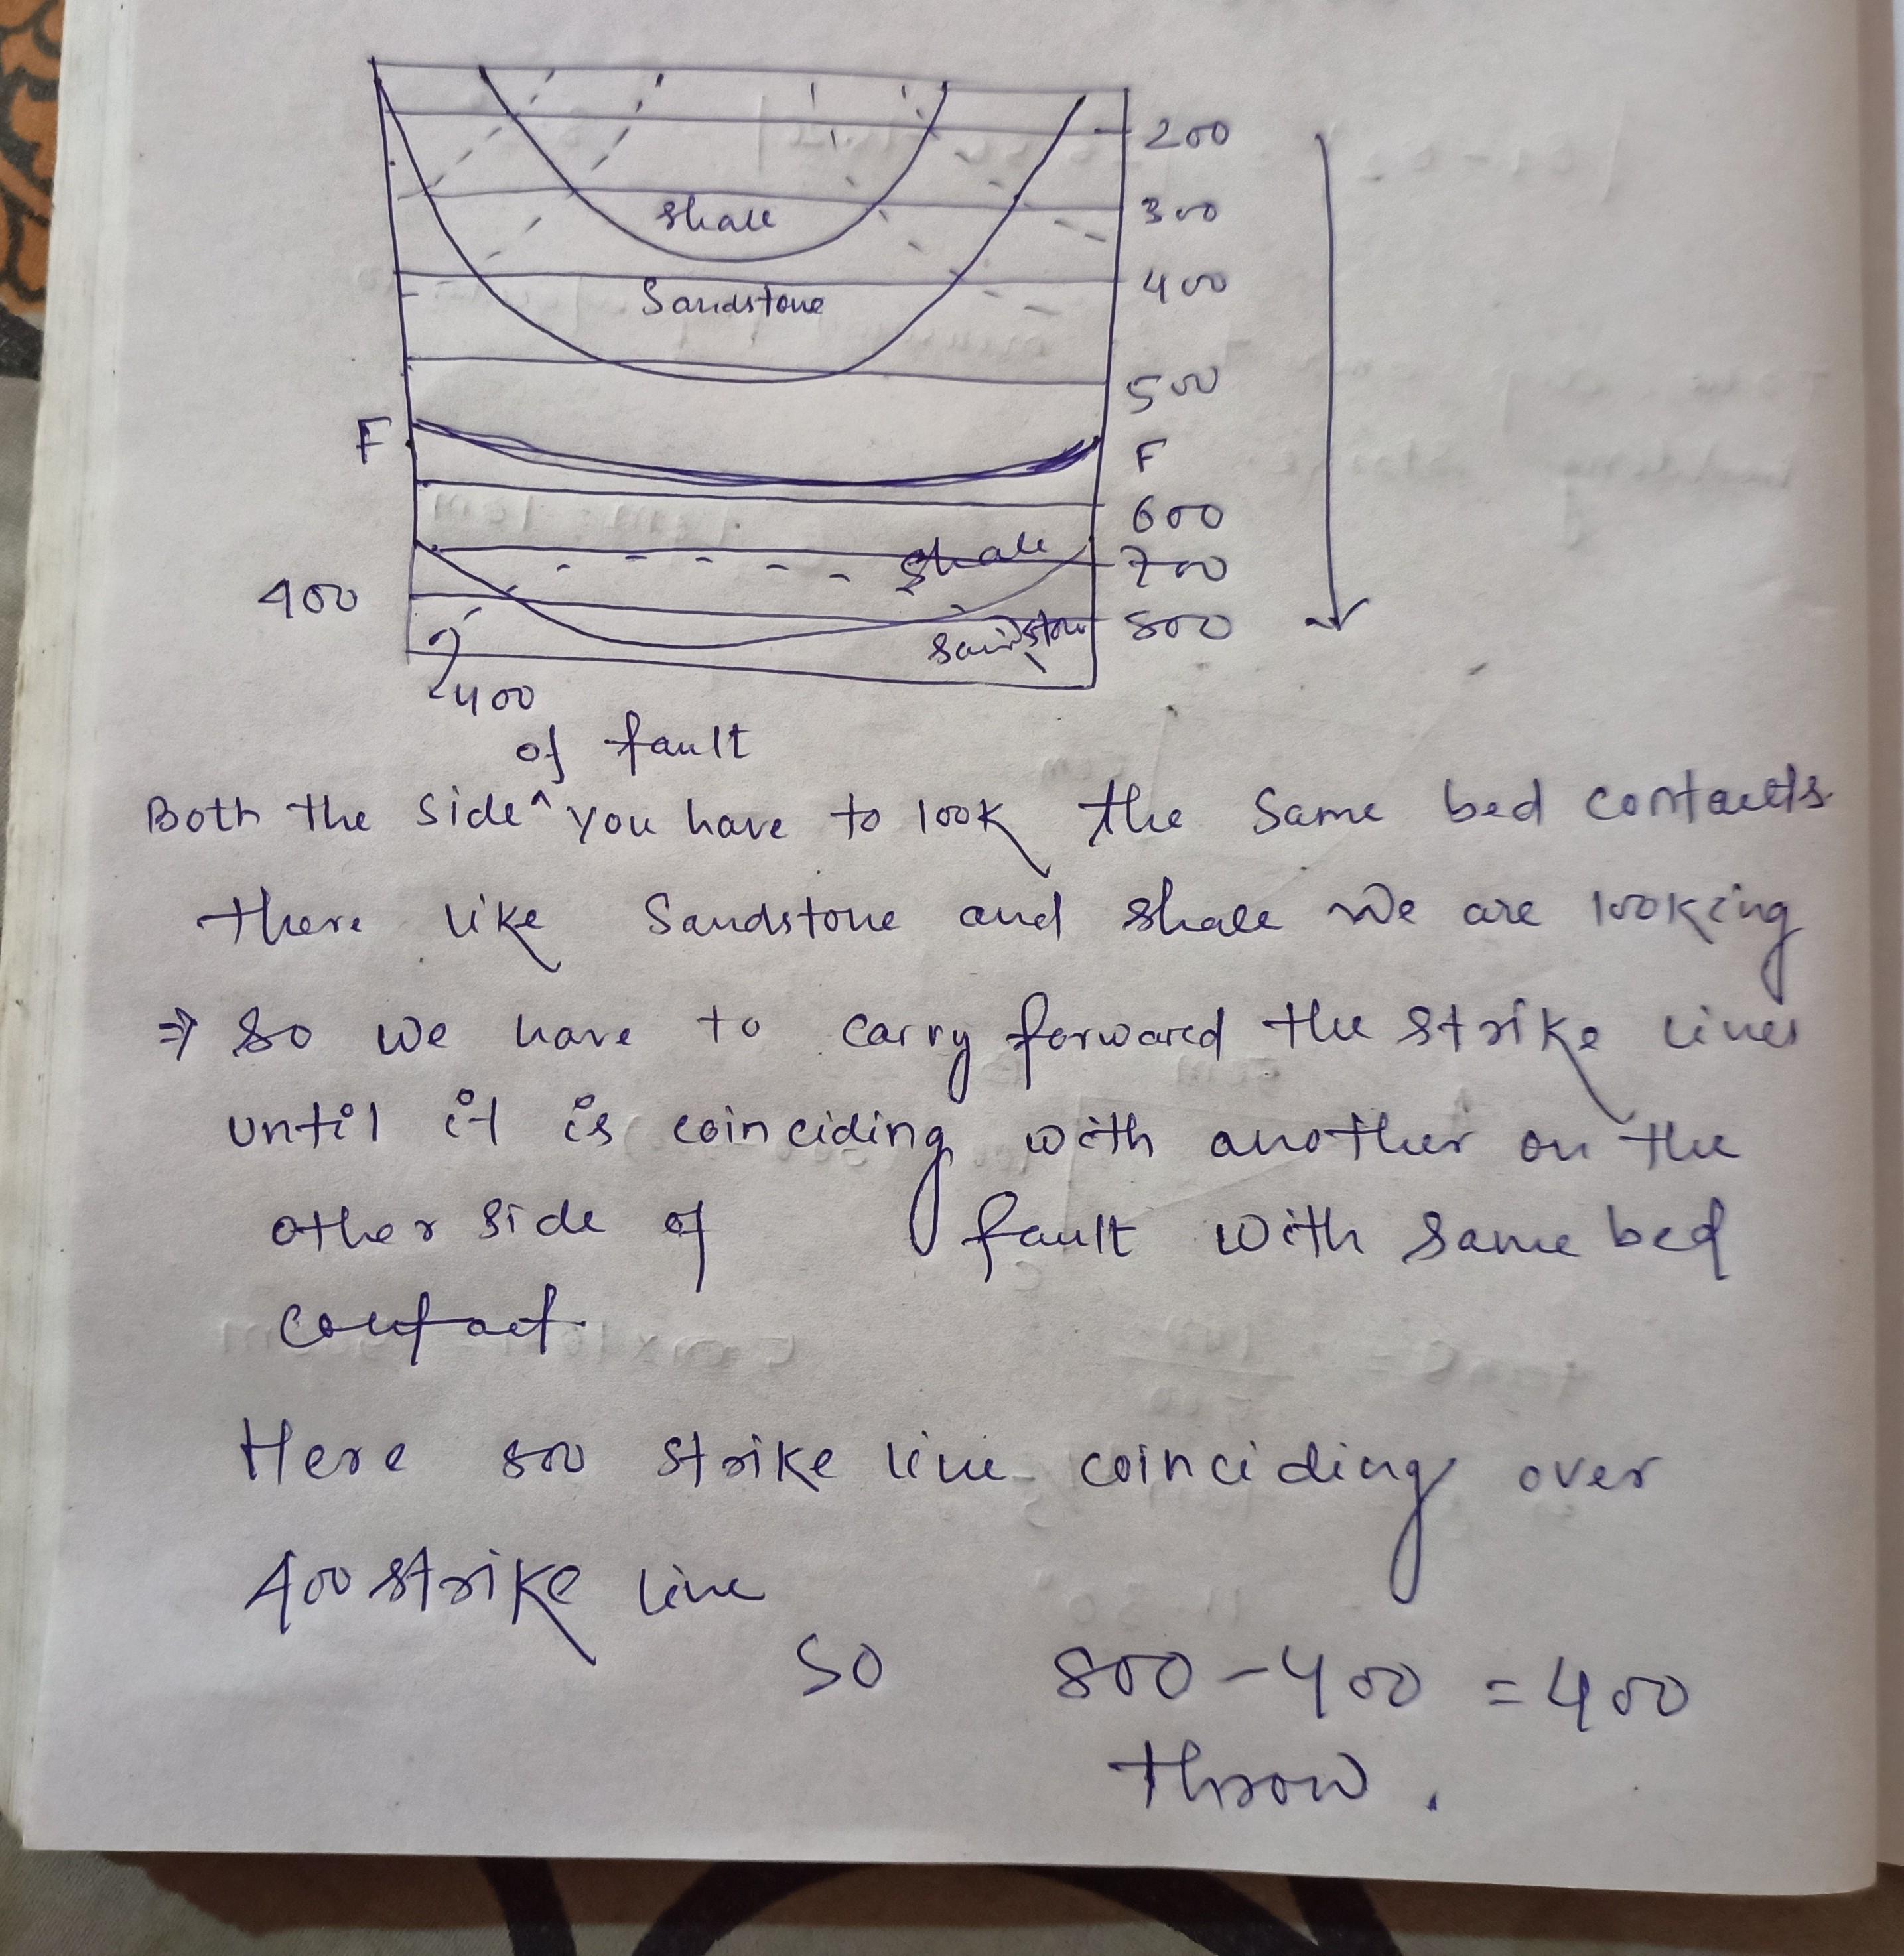 200
shale
300
400
Sandstone
500
F
F
600
shale
700
400
800
Sandstone
400
of fault
Both the side ^ you have to look the same bed contacts
there like Sandstone and shale we are looking
⇒ So we have to carry forward the strike lines
until it is coinciding with another on the
other side of fault with same bed
contact.
Here 800 strike line coinciding over
400 strike line
So 800 - 400 = 400
throw.